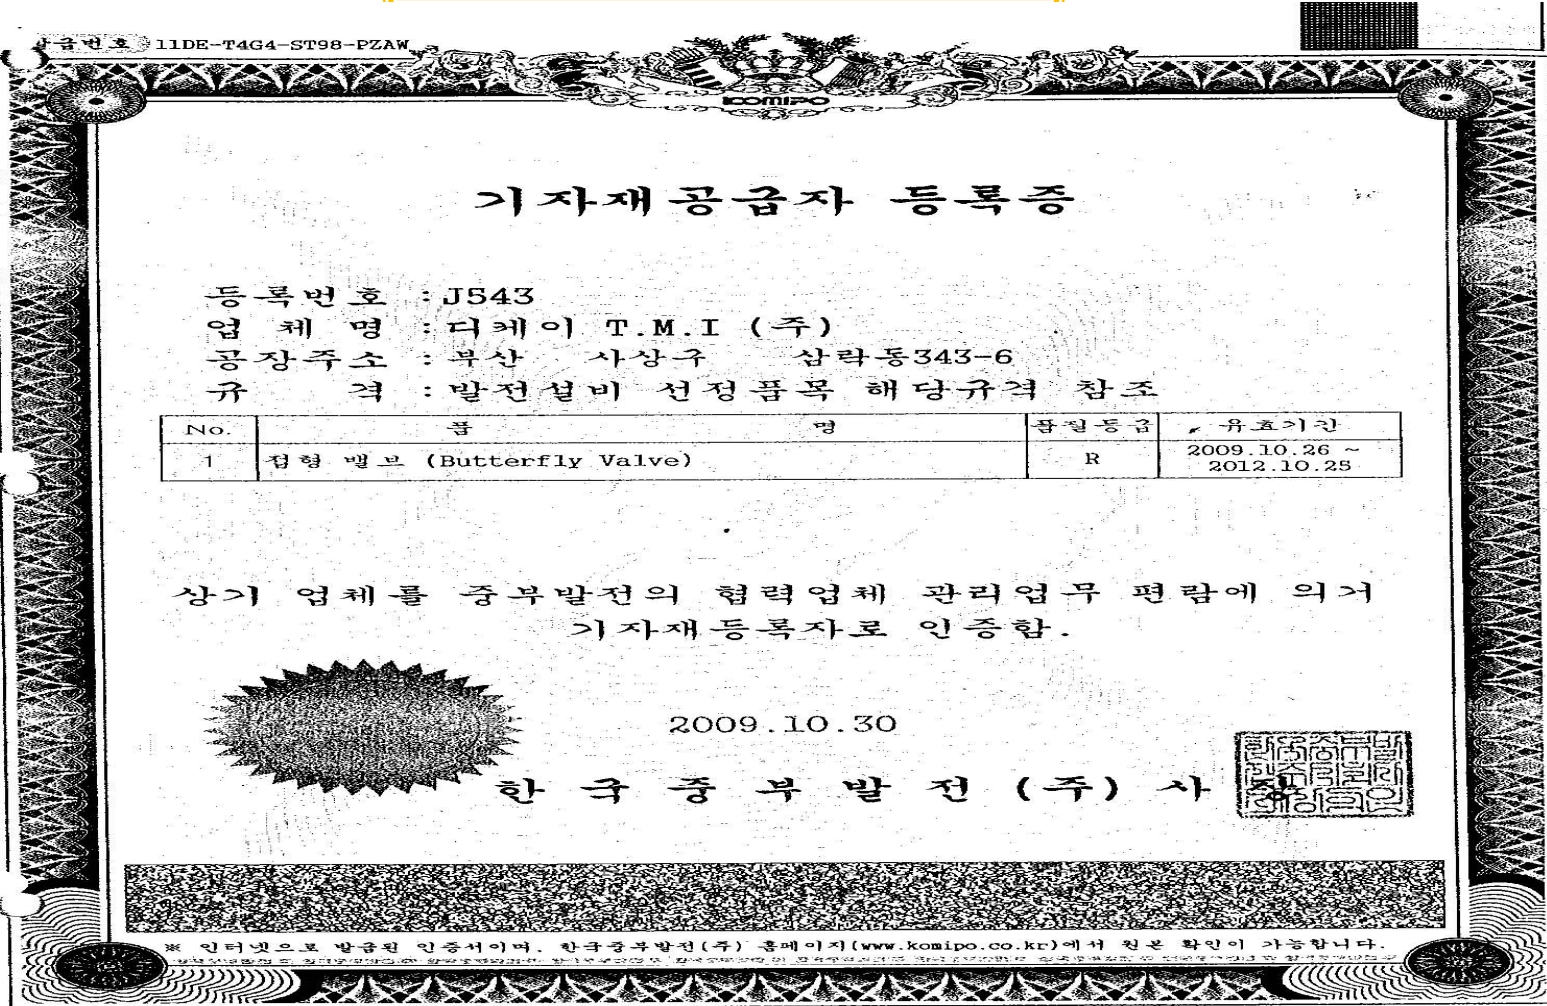 발급번호 11DE-T4G4-ST98-PZAW
KOMIPO
기자재공급자 등록증
등록번호 : J543
업체명 : 디케이 T.M.I (주)
공장주소 : 부산 사상구 삼락동343-6
규격 : 발전설비 선정품목 해당규격 참조
No. 품명 품질등급 유효기간
1 접형 밸브 (Butterfly Valve) R 2009.10.26 ~
2012.10.25
상기 업체를 중부발전의 협력업체 관리업무 편람에 의거
기자재등록자로 인증함.
2009.10.30
한국중부발전(주) 사장
※ 인터넷으로 발급된 인증서이며, 한국중부발전(주) 홈페이지(www.komipo.co.kr)에서 원본 확인이 가능합니다.